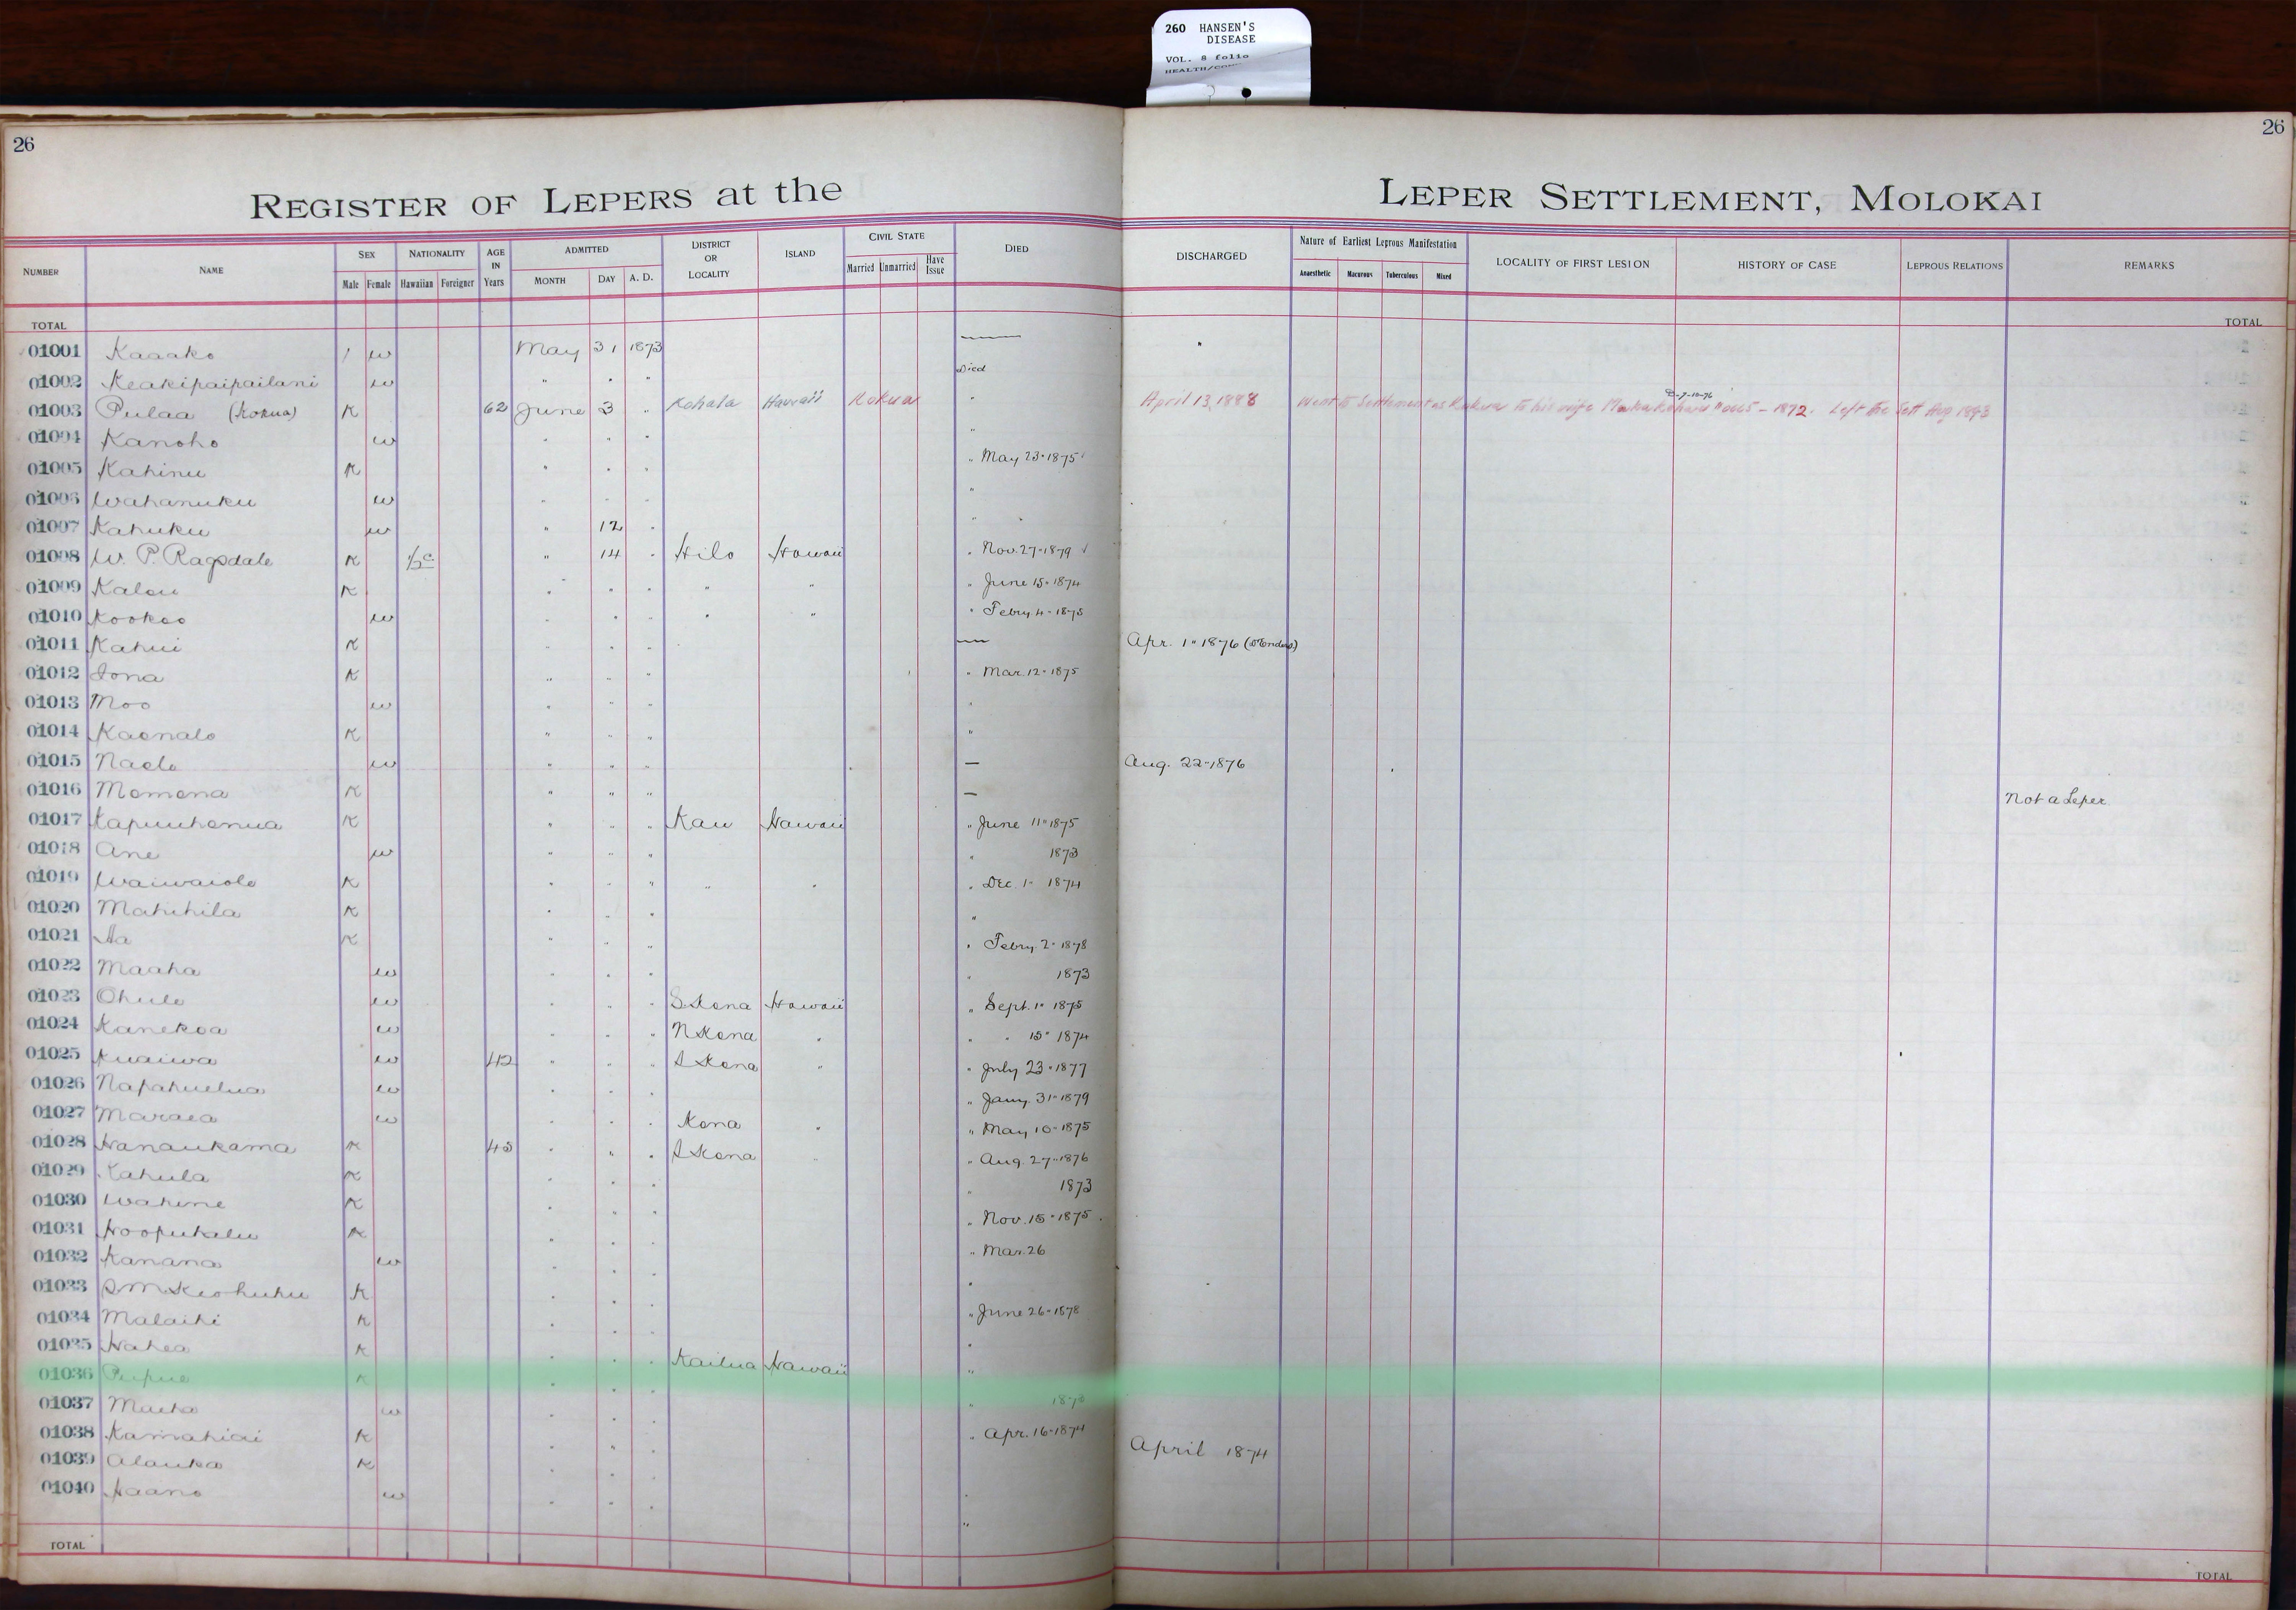 260 HANSEN'S
DISEASE
VOL. 8 folio
HEALTH/COM
26
26
REGISTER OF LEPERS at the LEPER SETTLEMENT, MOLOKAI
NUMBER NAME SEX NATIONALITY AGE IN Years ADMITTED DISTRICT OR LOCALITY ISLAND CIVIL STATE DIED DISCHARGED Nature of Earliest Leprous Manifestation LOCALITY OF FIRST LESION HISTORY OF CASE LEPROUS RELATIONS REMARKS
Male Female Hawaiian Foreigner MONTH DAY A. D. Married Unmarried Have Issue Anaesthetic Macurous Tuberculous Mixed
TOTAL TOTAL
01001 Kaaako / w May 31 1873 — "
01002 Keakipaipailani w " " " Died
01003 Pulaa (Kokua) K 62 June 3 " Kohala Hawaii Kokua " April 13, 1888 Went to Settlement as Kokua to his wife - 1872. Left the Sett Aug 1893
01004 Kanoho w " " " "
01005 Kahinu K " " " " May 23" 1875
01006 Wahanuku w " " " "
01007 Kahuku w " 12 " "
01008 W. P. Ragsdale K ½ c " 14 " Hilo Hawaii " Nov. 27" 1879
01009 Kalou K " " " " " " June 15" 1874
01010 Kookoo w " " " " " " Febry. 4 - 1875
01011 Kahui K " " " — Apr. 1" 1876
01012 Iona K " " " " Mar. 12" 1875
01013 Moo w " " " "
01014 Kaonalo K " " " "
01015 Naelo w " " " — Aug. 22-1876
01016 Momona K " " " — Not a Leper
01017 Kapuuhonua K " " " Kau Hawaii " June 11" 1875
01018 Ane w " " " " 1873
01019 Waiwaiole K " " " " " " Dec. 1" 1874
01020 Mahihila K " " " "
01021 Aa K " " " " Febry. 2" 1878
01022 Maaha w " " " " 1873
01023 Ohule w " " " S. Kona Hawaii " Sept. 1" 1875
01024 Kanekoa w " " " N Kona " " " 15" 1874
01025 Kuaiwa w 42 " " " S Kona " " July 23" 1877
01026 Napahuelua w " " " " Jany. 31" 1879
01027 Maraea w " " " Kona " " May 10" 1875
01028 Hanaukama K 45 " " " S Kona " " Aug. 27" 1876
01029 Kahula K " " " " 1873
01030 Wahine K " " " " Nov. 15" 1875
01031 Hoopukalu K " " " " Mar. 26
01032 Kanana w " " " "
01033 S M Keohuhu K " " " " June 26" 1878
01034 Malaihi K " " " "
01035 Hahea K " " " Kailua Hawaii "
01036 Pupue K " " " " 1873
01037 Maeha w " " " " Apr. 16" 1874
01038 Kamahiai K " " " April 1874
01039 Alauka K " " " "
01040 Haano w " " " "
TOTAL TOTAL